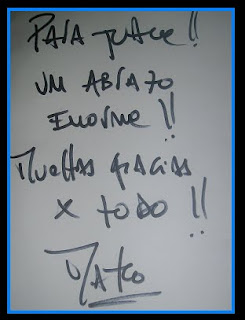 Para
un abrazo
enorme!!
Muchas gracias
x todo!!
Mateo